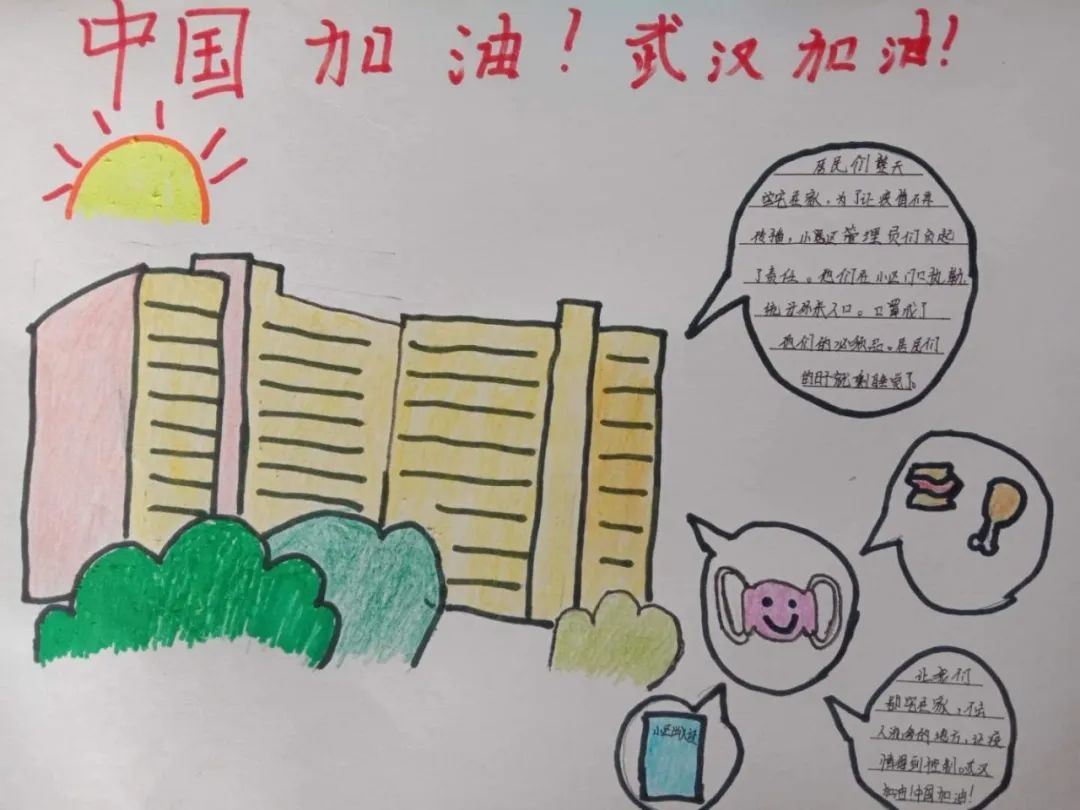 中国加油！武汉加油！
居民们整天
宅在家，为了让疫情不再
传播，小区管理员们负起
了责任。他们在小区门口执勤，
入口。口罩成了
他们的必须品。居民们
的
小区出入证
让我们
都宅在家，不去
人流多的地方，让疫
情得到控制。武汉
加油！中国加油！